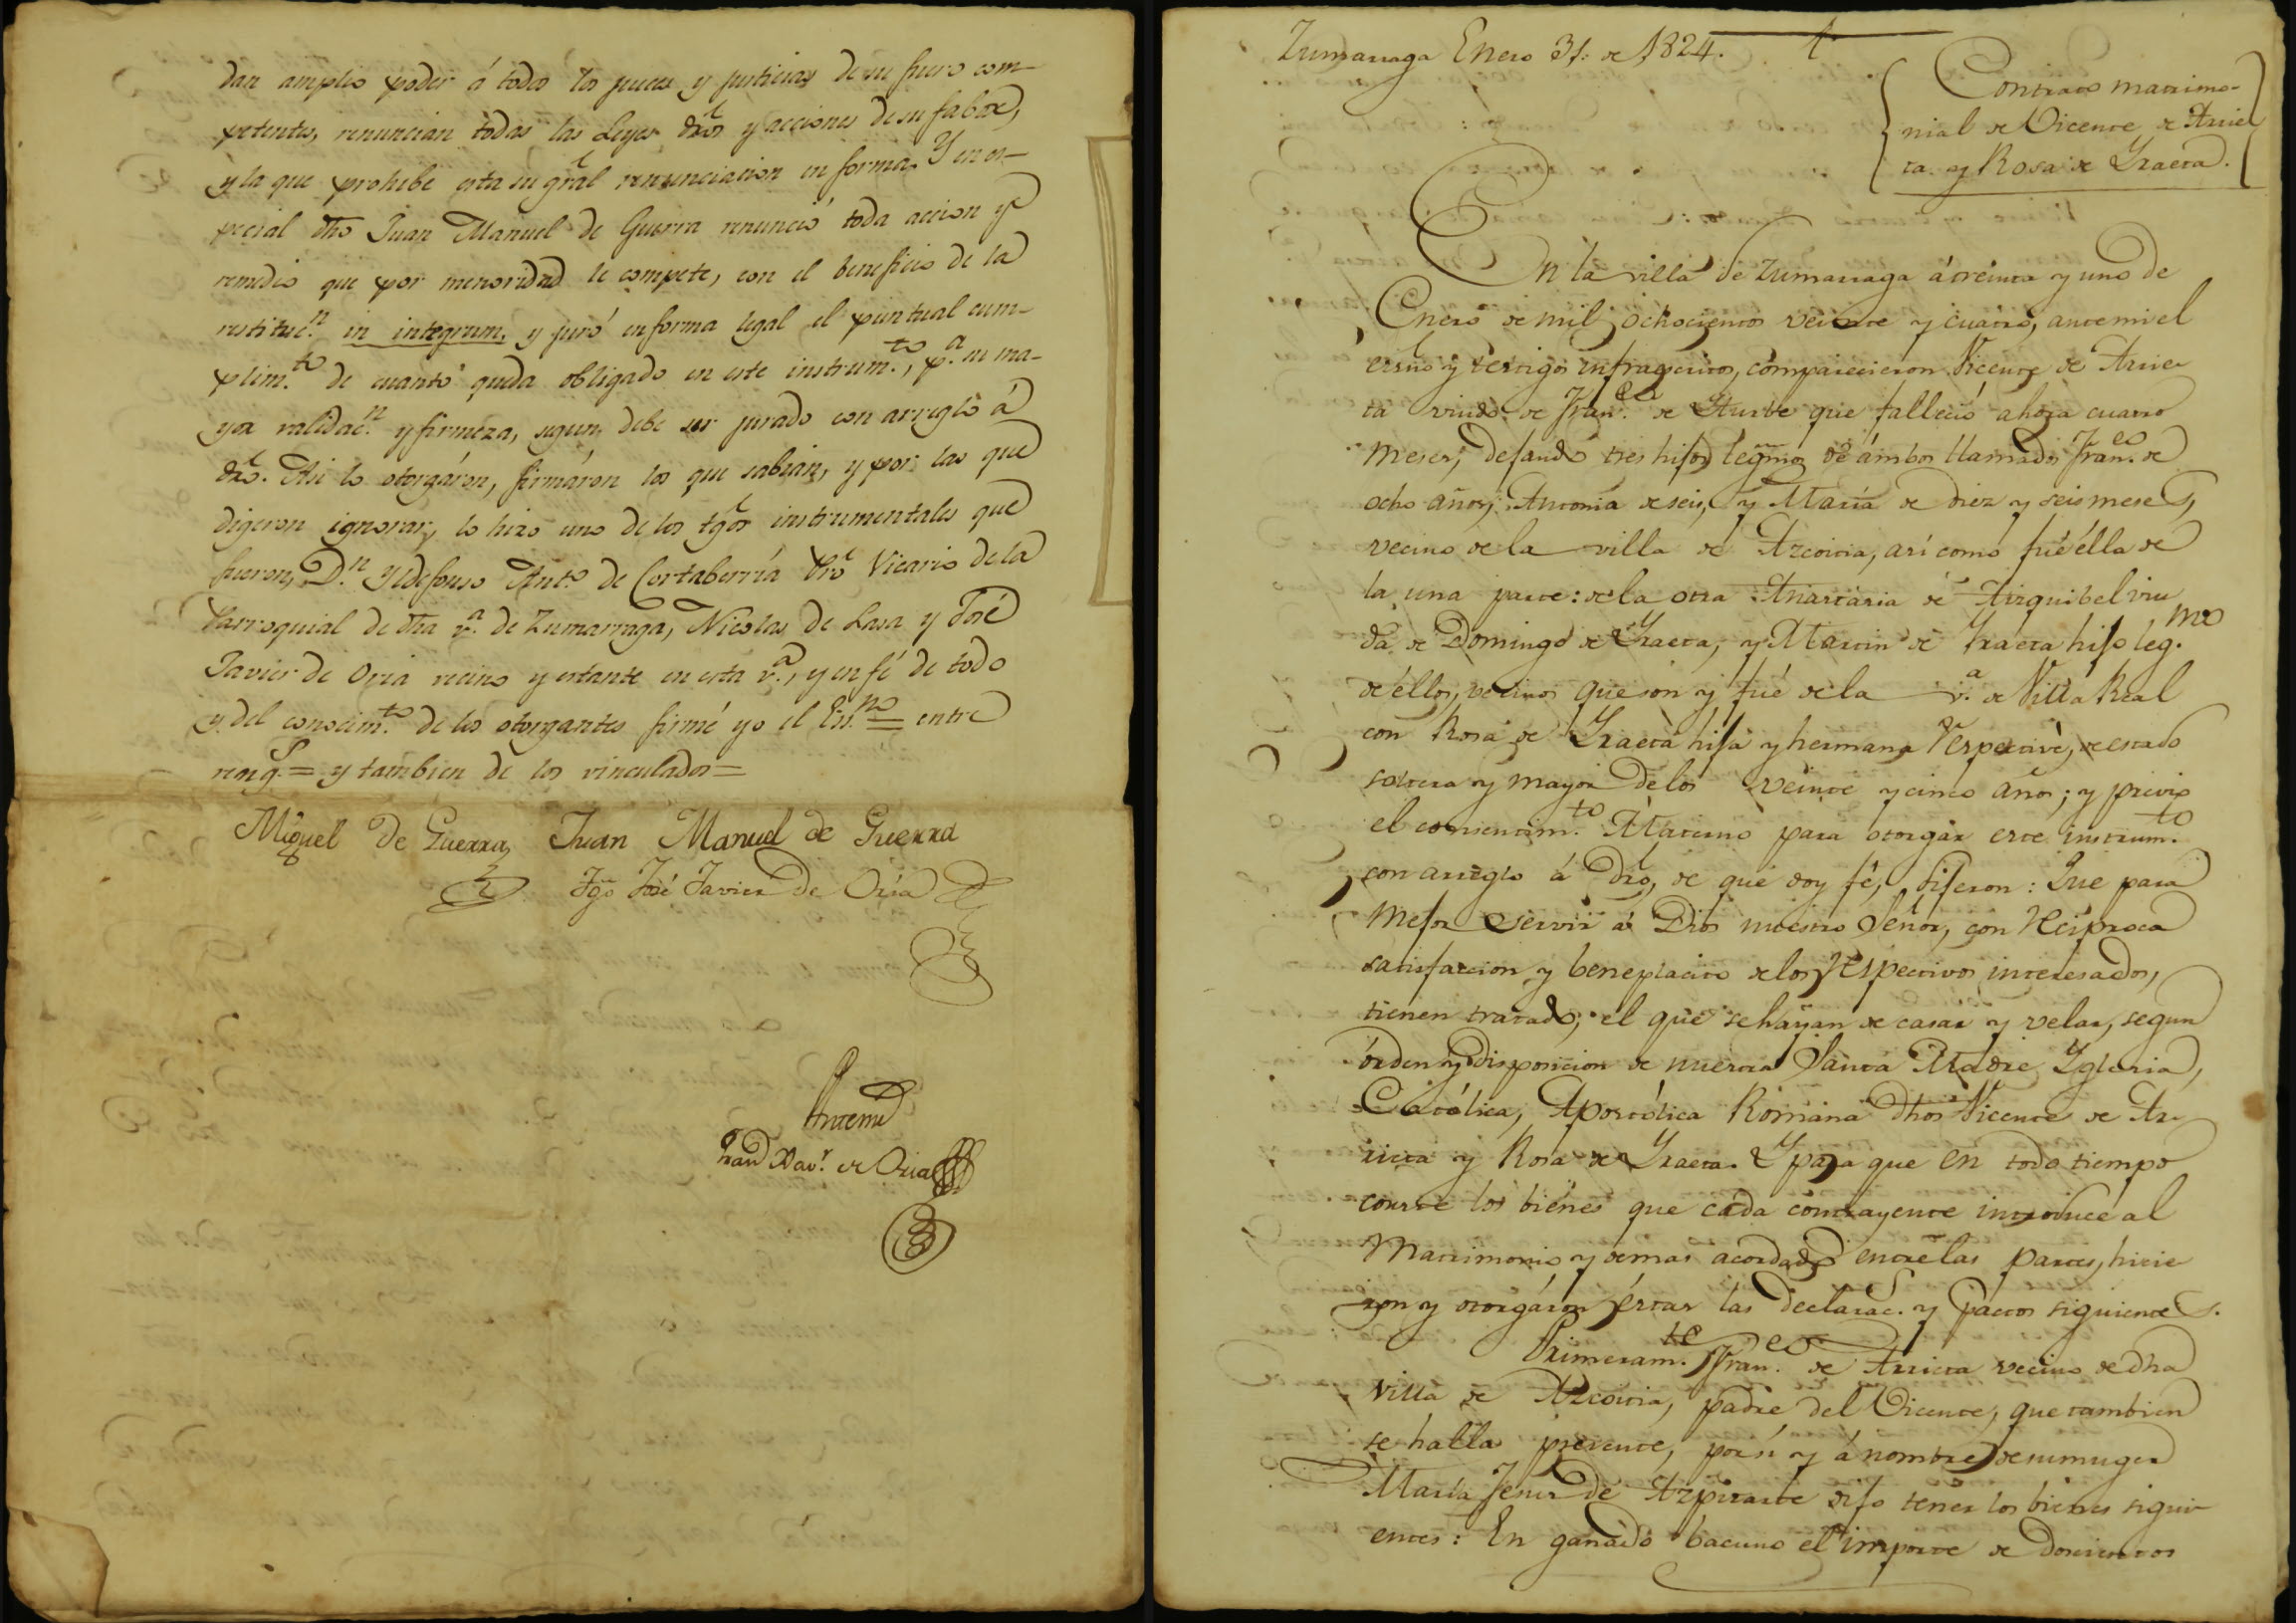 dan amplio poder á todos los jueces y justicias de su fuero com-
petentes, renuncian todas las Leyes dros y acciones de su fabor,
y la que prohibe esta su gral renunciacion en forma. Y en es-
pecial dho Juan Manuel de Guerra renunció toda accion y
remedio que por menoridad le compete, con el beneficio de la
restituc.n in integrum, y juró en forma legal el puntual cum-
plim.to de cuanto queda obligado en este instrum.to, p.a su ma-
yor validac.n y firmeza, segun debe ser jurado con arreglo á
dro. Asi lo otorgáron, firmáron los que sabian, y por los que
digeron ignorar, lo hizo uno de los tgos instrumentales que
fueron, D.n Yldefonso Ant.o de Cortaberría Pro Vicario de la
Parroquial de dha v.a de Zumarraga, Nicolas de Lasa y José
Javier de Oria vecino y estante en esta v.a, y en fé de todo
y del conocim.to de los otorgantes firmé yo el Es.no = entre
reng.s = y tambien de los vinculados =
Miguel de Guerra Juan Manuel de Guerra
Tgo José Javier de Oria
Antemi
Xav.r de Oria
Zumarraga Enero 31. de 1824.
Contrato matrimo-
nial de Vicente de Arrie
ta y Rosa de Yraeta.
En la villa de Zumarraga á treinta y uno de
Enero de mil ochocientos veinte y cuatro, ante mi el
esrno y testigos infraescritos, comparecieron Vicente de Arrie
ta viudo de Fran.ca de Yturbe que falleció ahora cuatro
meses, dejando tres hijos legmos de ámbos llamados Fran.co de
ocho años, Antonia de seis, y María de diez y seis meses,
vecino de la villa de Azcoitia, así como fué élla de
la una parte: de la otra Anastasia de Aizquibel viu
da de Domingo de Yraeta, y Martin de Yraeta hijo leg.mo
de éllos, vecinos que son y fué de la v.a de Villa Real
con Rosa de Yraeta hija y hermana respective, de estado
soltera y mayor de los veinte y cinco años; y previo
el consentim.to Materno para otorgar este instrum.to
con arreglo á dro, de que doy fé, dijeron: Que para
mejor servir á Dios nuestro Señor, con reciproca
satisfaccion y beneplacito de los respectivos interesados,
tienen tratado, el que se hayan de casar y velar, segun
órden y disposicion de nuestra Santa Madre Yglesia,
Católica, Apostólica Romana dhos Vicente de Ar-
rieta y Rosa de Yraeta. Y para que en todo tiempo
conste los bienes que cada contrayente introduce al
Matrimonio y demas acordado entre las partes, hicie
ron y otorgáron éstas las declarac.s y pactos siguientes.
Primeram.te Fran.co de Arrieta vecino de dha
villa de Azcoitia, padre del Vicente, que tambien
se halla presente, por sí y á nombre de su muger
María Jesus de Azpitarte dijo tener los bienes sigui-
entes: En ganado bacuno el importe de doscientos